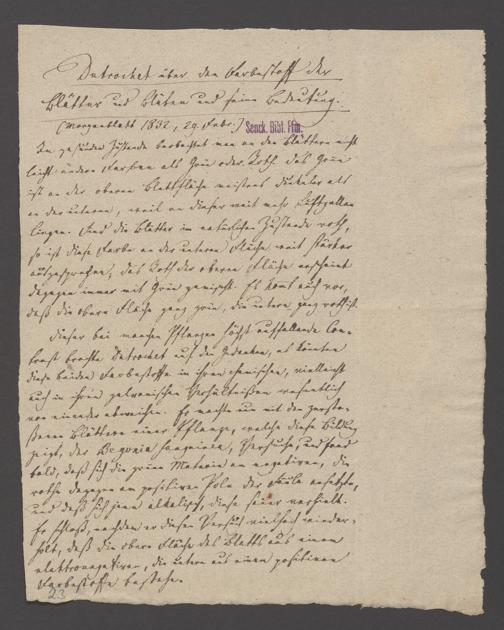 Dutrochet über den Farbestoff der
Blätter und Blüten und seine Bedeutung.
(Morgenblatt 1832, 29. Febr.) Senck. Bibl. Ffm.
Im gesunden Zustande beobachtet man an den Blättern nicht
leicht andere Farben als Grün oder Roth. Das Grün
ist an der oberen Blattfläche meistens dunkler als
an der unteren, weil an dieser weit mehr Luftzellen
liegen. Sind die Blätter im natürlichen Zustande roth,
so ist diese Farbe an der unteren Fläche weit stärker
ausgesprochen, das Roth der oberen Fläche erscheint
dagegen immer mit Grün gemischt. Es kommt auch vor,
daß die obere Fläche ganz grün, die untere ganz roth ist.
Dieser bei manchen Pflanzen höchst auffallende Con-
trast brachte Dutrochet auf den Gedanken, es könnten
diese beiden Farbestoffe in ihren chemischen, vielleicht
auch in ihren galvanischen Verhältnißen wesentlich
von einander abweichen. Er machte nun mit den zersto-
ßenen Blättern einer Pflanze, welche diese Bildung
zeigt, der Begonia sanguinea, Versuche, und fand
bald, daß sich die grüne Materie am negativen, die
rothe dagegen am positiven Pole der Säule ansetzte,
und daß sich jene alkalisch, diese sauer verhielt.
Er schloß, nachdem er diesen Versuch vielfach wieder-
holt, daß die obere Fläche des Blatts aus einem
elektronegativen, die untere aus einem positiven
Farbestoffe bestehe.
23